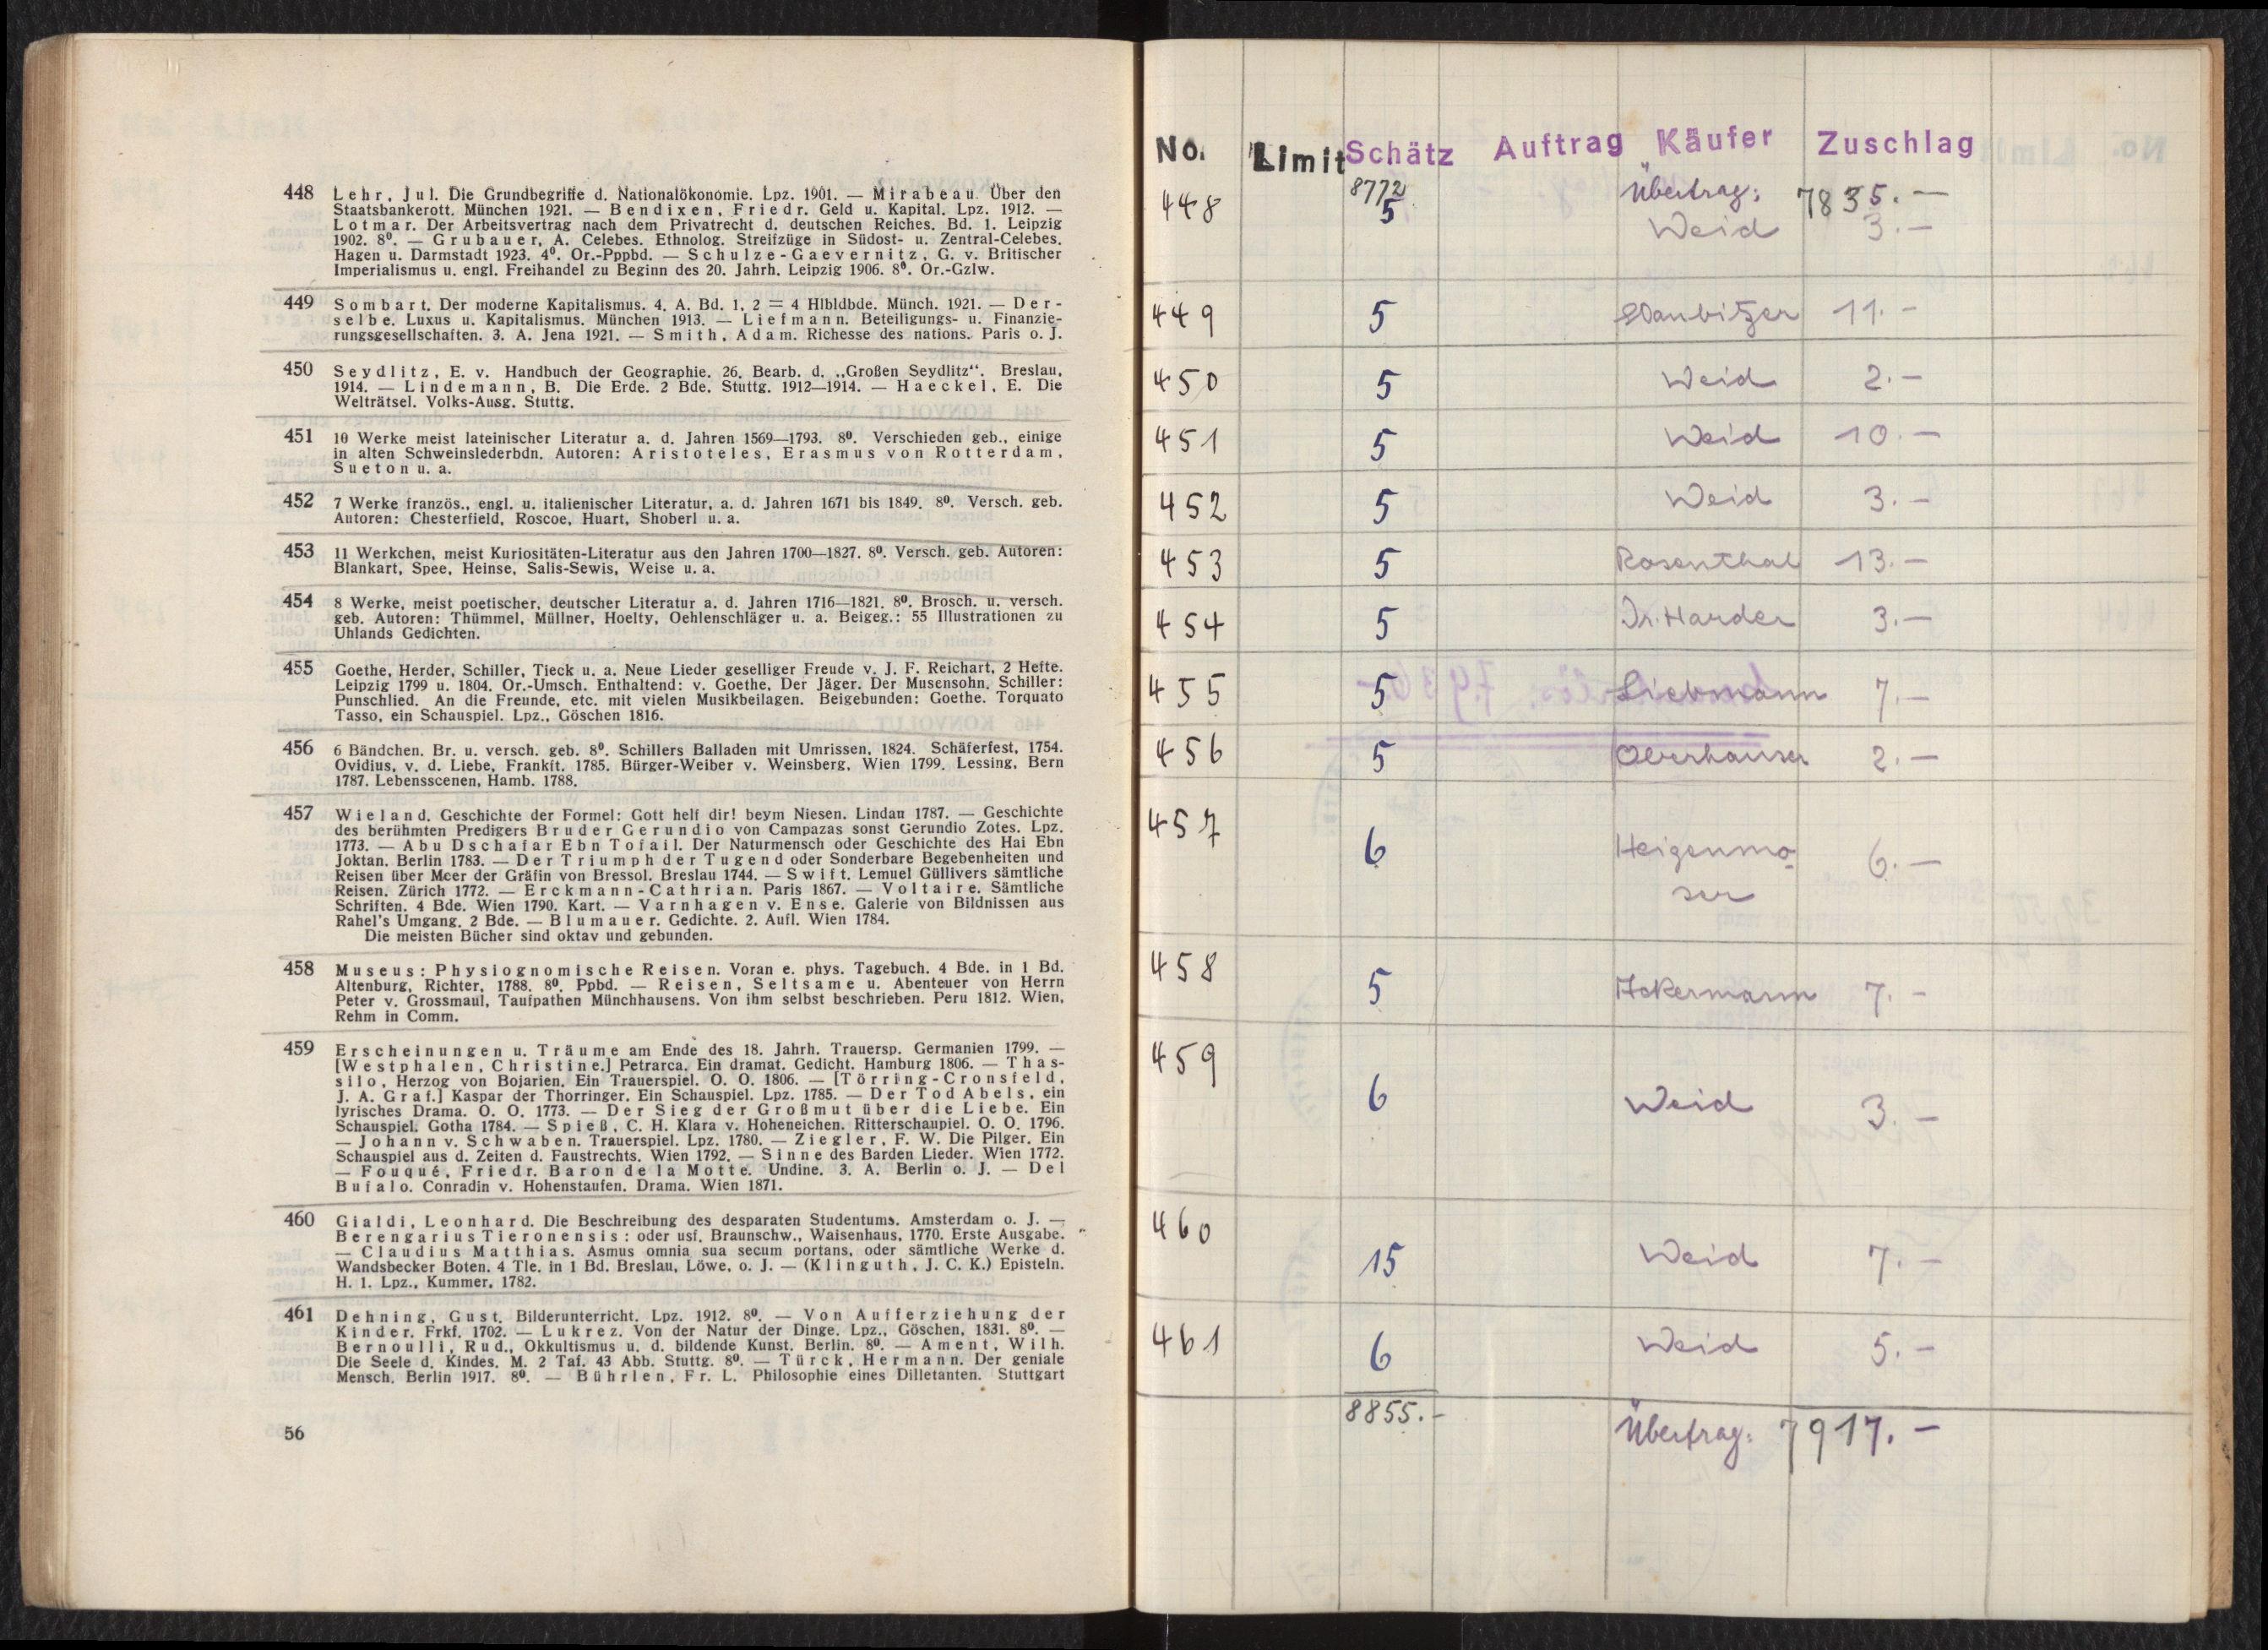 448 Lehr, Jul. Die Grundbegriffe d. Nationalökonomie. Lpz. 1901. — Mirabeau. Über den
Staatsbankerott. München 1921. — Bendixen, Friedr. Geld u. Kapital. Lpz. 1912. —
Lotmar. Der Arbeitsvertrag nach dem Privatrecht d. deutschen Reiches. Bd. 1. Leipzig
1902. 8⁰. — Grubauer, A. Celebes. Ethnolog. Streifzüge in Südost- u. Zentral-Celebes.
Hagen u. Darmstadt 1923. 4⁰. Or.-Pppbd. — Schulze-Gaevernitz, G. v. Britischer
Imperialismus u. engl. Freihandel zu Beginn des 20. Jahrh. Leipzig 1906. 8⁰. Or.-Gzlw.
449 Sombart. Der moderne Kapitalismus. 4. A. Bd. 1, 2 = 4 Hlbldbde. Münch. 1921. — Der-
selbe. Luxus u. Kapitalismus. München 1913. — Liefmann. Beteiligungs- u. Finanzie-
rungsgesellschaften. 3. A. Jena 1921. — Smith, Adam. Richesse des nations. Paris o. J.
450 Seydlitz, E. v. Handbuch der Geographie. 26. Bearb. d. „Großen Seydlitz“. Breslau,
1914. — Lindemann, B. Die Erde. 2 Bde. Stuttg. 1912—1914. — Haeckel, E. Die
Welträtsel. Volks-Ausg. Stuttg.
451 10 Werke meist lateinischer Literatur a. d. Jahren 1569—1793. 8⁰. Verschieden geb., einige
in alten Schweinslederbdn. Autoren: Aristoteles, Erasmus von Rotterdam,
Sueton u. a.
452 7 Werke französ., engl. u. italienischer Literatur, a. d. Jahren 1671 bis 1849. 8⁰. Versch. geb.
Autoren: Chesterfield, Roscoe, Huart, Shoberl u. a.
453 11 Werkchen, meist Kuriositäten-Literatur aus den Jahren 1700—1827. 8⁰. Versch. geb. Autoren:
Blankart, Spee, Heinse, Salis-Sewis, Weise u. a.
454 8 Werke, meist poetischer, deutscher Literatur a. d. Jahren 1716—1821. 8⁰. Brosch. u. versch.
geb. Autoren: Thümmel, Müllner, Hoelty, Oehlenschläger u. a. Beigeg.: 55 Illustrationen zu
Uhlands Gedichten.
455 Goethe, Herder, Schiller, Tieck u. a. Neue Lieder geselliger Freude v. J. F. Reichart, 2 Hefte.
Leipzig 1799 u. 1804. Or.-Umsch. Enthaltend: v. Goethe, Der Jäger. Der Musensohn. Schiller:
Punschlied. An die Freunde, etc. mit vielen Musikbeilagen. Beigebunden: Goethe. Torquato
Tasso, ein Schauspiel. Lpz., Göschen 1816.
456 6 Bändchen. Br. u. versch. geb. 8⁰. Schillers Balladen mit Umrissen, 1824. Schäferfest, 1754.
Ovidius, v. d. Liebe, Frankft. 1785. Bürger-Weiber v. Weinsberg, Wien 1799. Lessing, Bern
1787. Lebensscenen, Hamb. 1788.
457 Wieland. Geschichte der Formel: Gott helf dir! beym Niesen. Lindau 1787. — Geschichte
des berühmten Predigers Bruder Gerundio von Campazas sonst Gerundio Zotes. Lpz.
1773. — Abu Dschafar Ebn Tofail. Der Naturmensch oder Geschichte des Hai Ebn
Joktan. Berlin 1783. — Der Triumph der Tugend oder Sonderbare Begebenheiten und
Reisen über Meer der Gräfin von Bressol. Breslau 1744. — Swift. Lemuel Güllivers sämtliche
Reisen. Zürich 1772. — Erckmann-Cathrian. Paris 1867. — Voltaire. Sämtliche
Schriften. 4 Bde. Wien 1790. Kart. — Varnhagen v. Ense. Galerie von Bildnissen aus
Rahel's Umgang. 2 Bde. — Blumauer. Gedichte. 2. Aufl. Wien 1784.
Die meisten Bücher sind oktav und gebunden.
458 Museus: Physiognomische Reisen. Voran e. phys. Tagebuch. 4 Bde. in 1 Bd.
Altenburg, Richter, 1788. 8⁰. Ppbd. — Reisen, Seltsame u. Abenteuer von Herrn
Peter v. Grossmaul, Taufpathen Münchhausens. Von ihm selbst beschrieben. Peru 1812. Wien,
Rehm in Comm.
459 Erscheinungen u. Träume am Ende des 18. Jahrh. Trauersp. Germanien 1799. —
[Westphalen, Christine.] Petrarca. Ein dramat. Gedicht. Hamburg 1806. — Thas-
silo, Herzog von Bojarien. Ein Trauerspiel. O. O. 1806. — [Törring-Cronsfeld,
J. A. Graf.] Kaspar der Thorringer. Ein Schauspiel. Lpz. 1785. — Der Tod Abels, ein
lyrisches Drama. O. O. 1773. — Der Sieg der Großmut über die Liebe. Ein
Schauspiel. Gotha 1784. — Spieß, C. H. Klara v. Hoheneichen. Ritterschaupiel. O. O. 1796.
— Johann v. Schwaben. Trauerspiel. Lpz. 1780. — Ziegler, F. W. Die Pilger. Ein
Schauspiel aus d. Zeiten d. Faustrechts. Wien 1792. — Sinne des Barden Lieder. Wien 1772.
— Fouqué, Friedr. Baron de la Motte. Undine. 3. A. Berlin o. J. — Del
Bufalo. Conradin v. Hohenstaufen. Drama. Wien 1871.
460 Gialdi, Leonhard. Die Beschreibung des desparaten Studentums. Amsterdam o. J. —
Berengarius Tieronensis: oder usf. Braunschw., Waisenhaus, 1770. Erste Ausgabe.
— Claudius Matthias. Asmus omnia sua secum portans, oder sämtliche Werke d.
Wandsbecker Boten. 4 Tle. in 1 Bd. Breslau, Löwe, o. J. — (Klinguth, J. C. K.) Episteln.
H. 1. Lpz., Kummer, 1782.
461 Dehning, Gust. Bilderunterricht. Lpz. 1912. 8⁰. — Von Aufferziehung der
Kinder. Frkf. 1702. — Lukrez. Von der Natur der Dinge. Lpz., Göschen, 1831. 8⁰. —
Bernoulli, Rud., Okkultismus u. d. bildende Kunst. Berlin. 8⁰. — Ament, Wilh.
Die Seele d. Kindes. M. 2 Taf. 43 Abb. Stuttg. 8⁰. — Türck, Hermann. Der geniale
Mensch. Berlin 1917. 8⁰. — Bührlen, Fr. L. Philosophie eines Dilletanten. Stuttgart
56
No. Limit Schätz Auftrag Käufer Zuschlag
8772 Übertrag: 7835.—
448 5 Weid 3.—
449 5 11.—
450 5 Weid 2.—
451 5 Weid 10.—
452 5 Weid 3.—
453 5 Rosenthal 13.—
454 5 Dr. Harder 3.—
455 5 Liebmann 7.—
456 5 Oberhauser 2.—
457 6 Heigenmo- 6.—
ser
458 5 Ackermann 7.—
459 6 Weid 3.—
460 15 Weid 7.—
461 6 Weid 5.—
8855.—
Übertrag: 7917.—